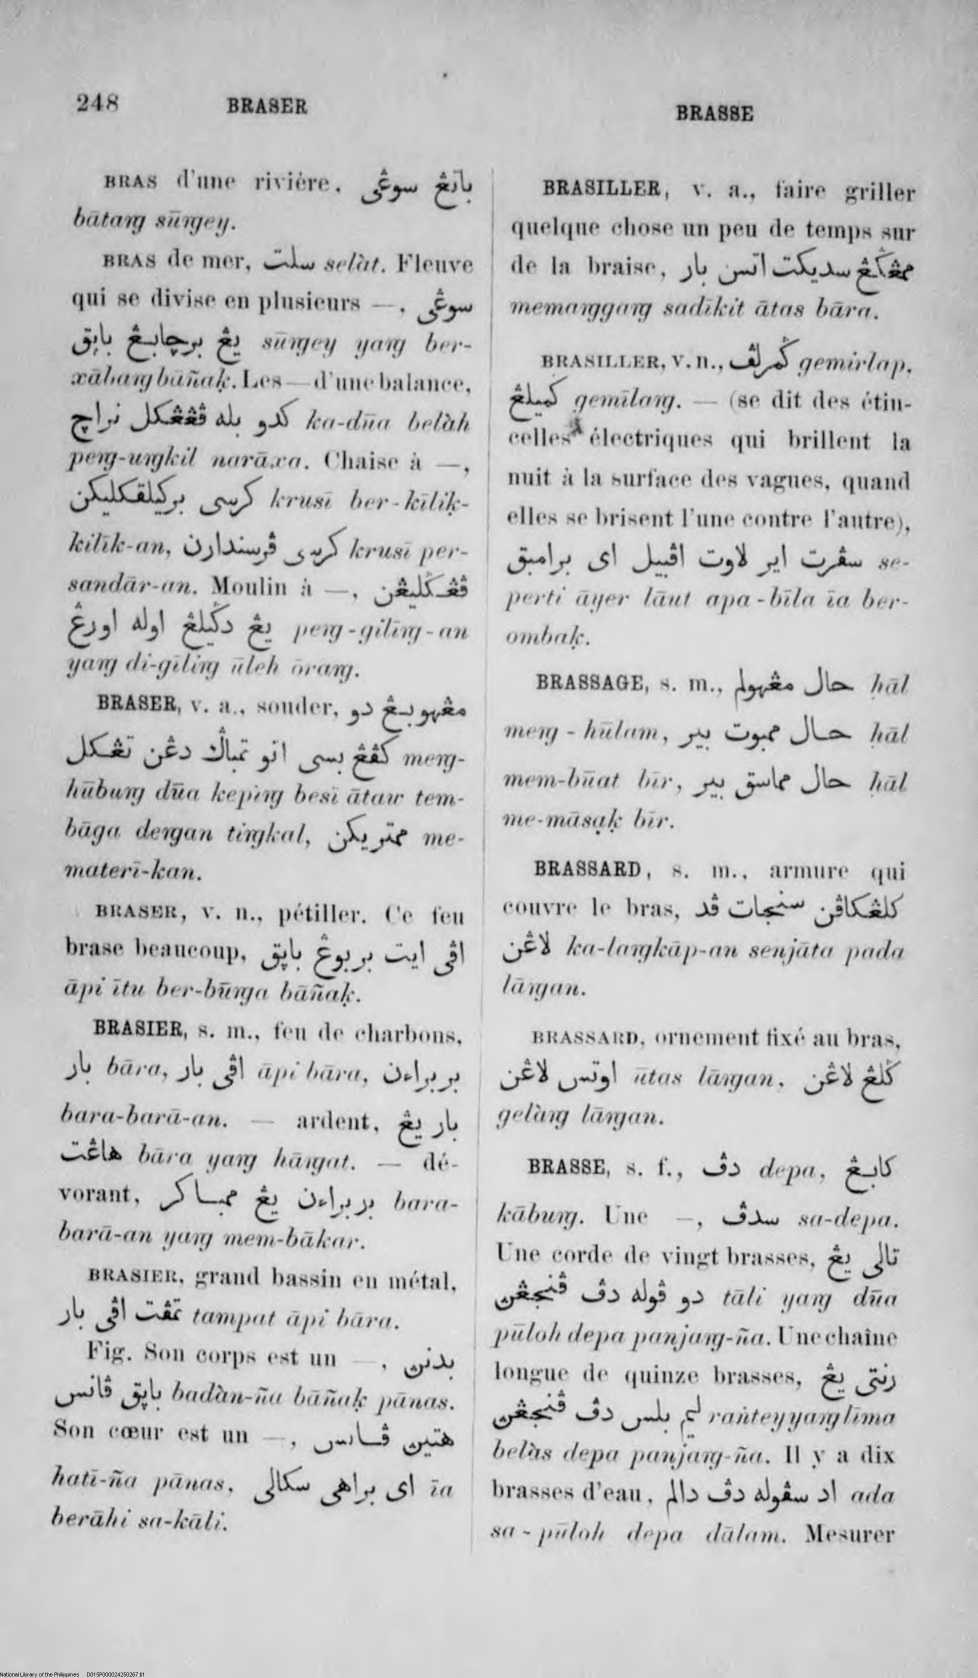 248 BRASER
BRASSE
BRAS d'une rivière, باتڠ سوڠى
bātaƞ sūƞey.
BRAS de mer, سلت selàt. Fleuve
qui se divise en plusieurs —, سوڠى
يڠ برچابڠ باڽق sūƞey yaƞ ber-
xābaƞ bāñaḳ. Les — d'une balance,
كدو بله ڤڠڠكل نراچ ka-dūa belàh
peƞ-uƞkil narāxa. Chaise à —,
كرسى بركيلقكليكن krusī ber-kīliḳ-
kilīk-an, كرسى ڤرسندارن krusī per-
sandār-an. Moulin à —, ڤڠݢليڠن
يڠ دݢيلڠ اوله اورڠ peƞ-gilīƞ-an
yaƞ di-gīliƞ ūleh ōraƞ.
BRASER, v. a., souder, مڠهوبڠ دو
كڤڠ بسى اتو تمباݢ دڠن تڠكل meƞ-
hūbuƞ dūa kepiƞ besī ātaw tem-
bāga deƞan tiƞkal, ممتريكن me-
materī-kan.
BRASER, v. n., pétiller. Ce feu
brase beaucoup, اڤى ايت بربوڠ باڽق
āpi ītu ber-būƞa bāñaḳ.
BRASIER, s. m., feu de charbons,
بار bāra, اڤى بار āpi bāra, بربراءن
bara-barā-an. — ardent, بار يڠ
هاڠت bāra yaƞ hāƞat. — dé-
vorant, بربراءن يڠ ممباكر bara-
barā-an yaƞ mem-bākar.
BRASIER, grand bassin en métal,
تمڤت اڤى بار tampat āpi bāra.
Fig. Son corps est un —, بدنڽ
باڽق ڤانس badàn-ña bāñaḳ pānas.
Son cœur est un —, هتيڽ ڤانس
hatī-ña pānas, اى براهى سكالى īa
berāhi sa-kāli.
BRASILLER, v. a., faire griller
quelque chose un peu de temps sur
de la braise, ممڠݢڠ سديكت اتس بار
memaƞgaƞ sadīkit ātas bāra.
BRASILLER, v. n., ݢمرلڤ gemirlap,
ݢميلڠ gemīlaƞ. — (se dit des étin-
celles électriques qui brillent la
nuit à la surface des vagues, quand
elles se brisent l'une contre l'autre),
سڤرت اير لاوت اڤبيل اى برامبق se-
perti āyer lāut apa-bīla īa ber-
ombaḳ.
BRASSAGE, s. m., حال مڠهولم ḥāl
meƞ-hūlam, حال ممبوت بير ḥāl
mem-būat bīr, حال مماسق بير ḥāl
me-māsaḳ bīr.
BRASSARD, s. m., armure qui
couvre le bras, كلڠكاڤن سنجات ڤد
لاڠن ka-laƞkāp-an senjāta pada
lāƞan.
BRASSARD, ornement fixé au bras,
اوتس لاڠن ūtas lāƞan, ݢلڠ لاڠن
gelàƞ lāƞan.
BRASSE, s. f., دڤ depa, كابڠ
kābuƞ. Une —, سدڤ sa-depa.
Une corde de vingt brasses, تالى يڠ
دو ڤوله دڤ ڤنجڠڽ tāli yaƞ dūa
pūloh depa panjaƞ-ña. Une chaîne
longue de quinze brasses, رنتى يڠ
ليم بلس دڤ ڤنجڠڽ rañtey yaƞ līma
belàs depa panjaƞ-ña. Il y a dix
brasses d'eau, اد سڤوله دڤ دالم ada
sa-pūloh depa dālam. Mesurer
National Library of the Philippines